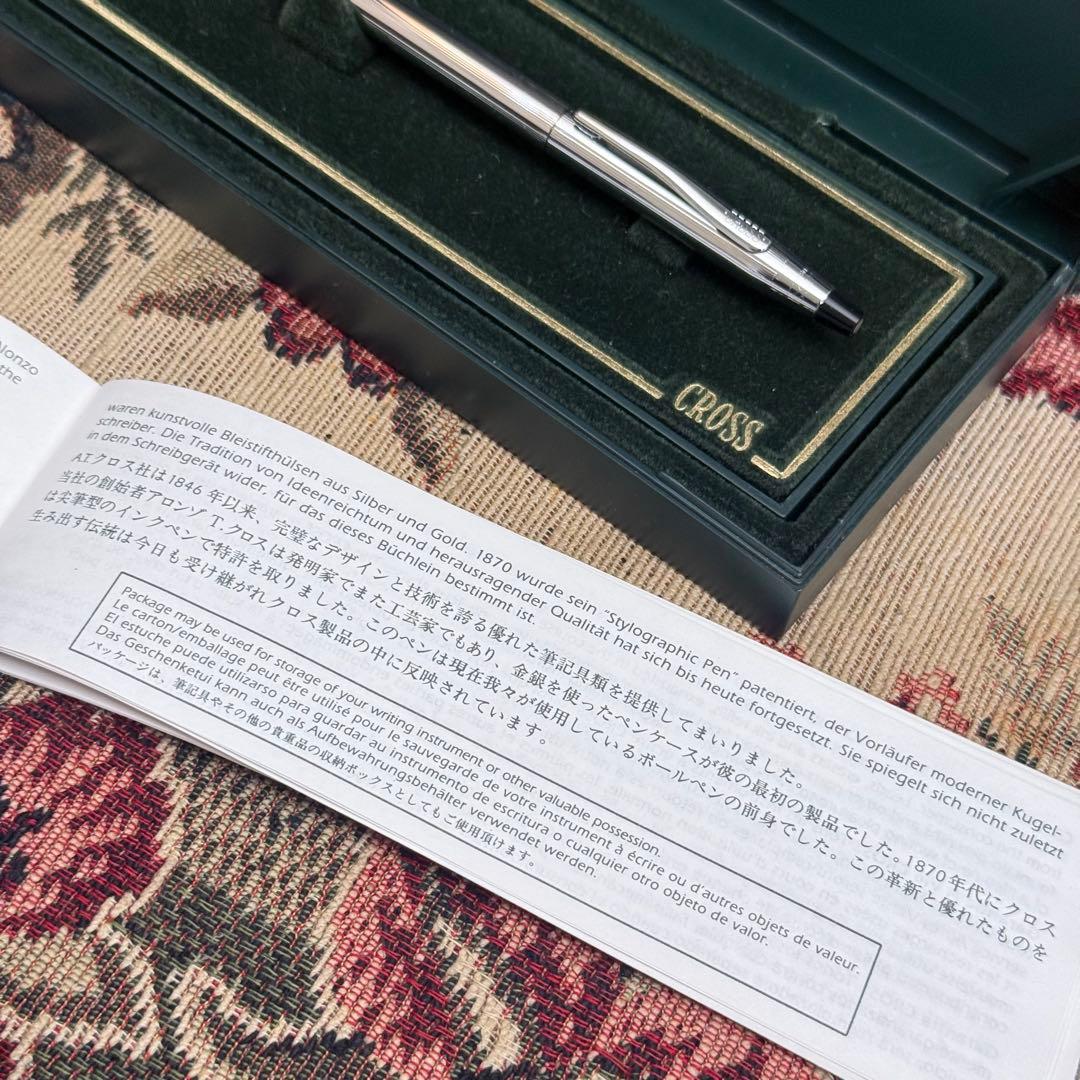 CROSS
lonzo
the
waren kunstvolle Bleistifthülsen aus Silber und Gold. 1870 wurde sein "Stylographic Pen" patentiert, der Vorläufer moderner Kugel-
schreiber. Die Tradition von Ideenreichtum und herausragender Qualität hat sich bis heute fortgesetzt. Sie spiegelt sich nicht zuletzt
in dem Schreibgerät wider, für das dieses Büchlein bestimmt ist.
A.T.クロス社は1846年以来、完璧なデザインと技術を誇る優れた筆記具類を提供してまいりました。
当社の創始者アロンゾ T.クロスは発明家でまた工芸家でもあり、金銀を使ったペンケースが彼の最初の製品でした。1870年代にクロス
は尖筆型のインクペンで特許を取りました。このペンは現在我々が使用しているボールペンの前身でした。この革新と優れたものを
生み出す伝統は今日も受け継がれクロス製品の中に反映されています。
Package may be used for storage of your writing instrument or other valuable possession.
Le carton/emballage peut être utilisé pour le sauvegarde de votre instrument à écrire ou d'autres objets de valeur.
El estuche puede utilizarso para guardar au instrumento de escritura o cualquier otro objeto de valor.
Das Geschenketui kann auch als Aufbewahrungsbehälter verwendet werden.
パッケージは、筆記具やその他の貴重品の収納ボックスとしてもご使用頂けます。